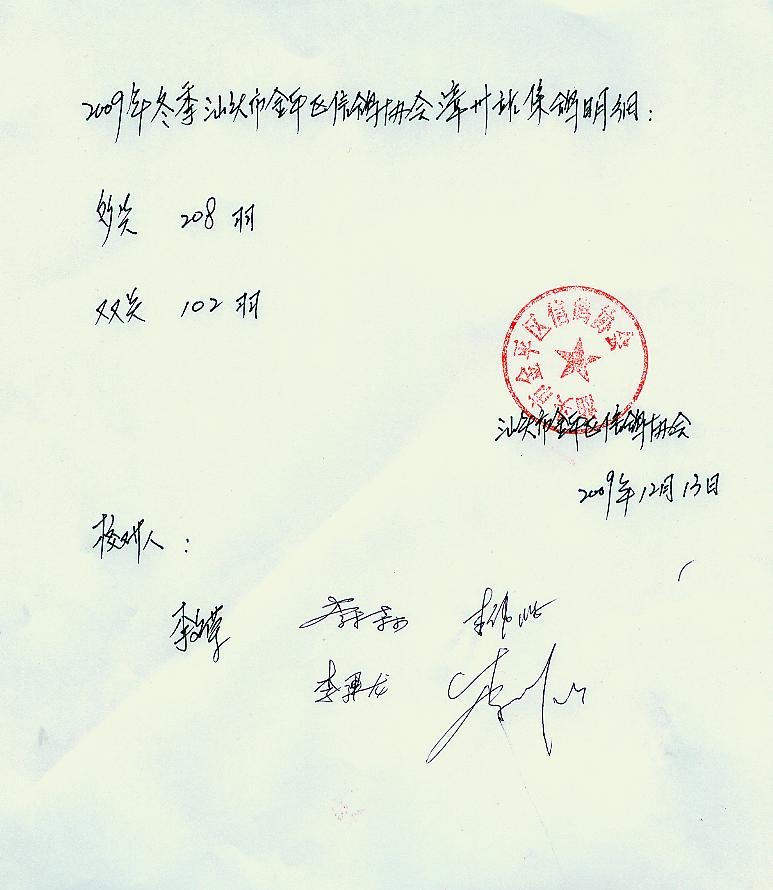 2009年冬季汕头市金平区信鸽协会漳州站集鸽明细:
多关 208羽
双关 102羽
汕头市金平区信鸽协会
汕头市金平区信鸽协会
2009年12月13日
校对人:
李
李
李